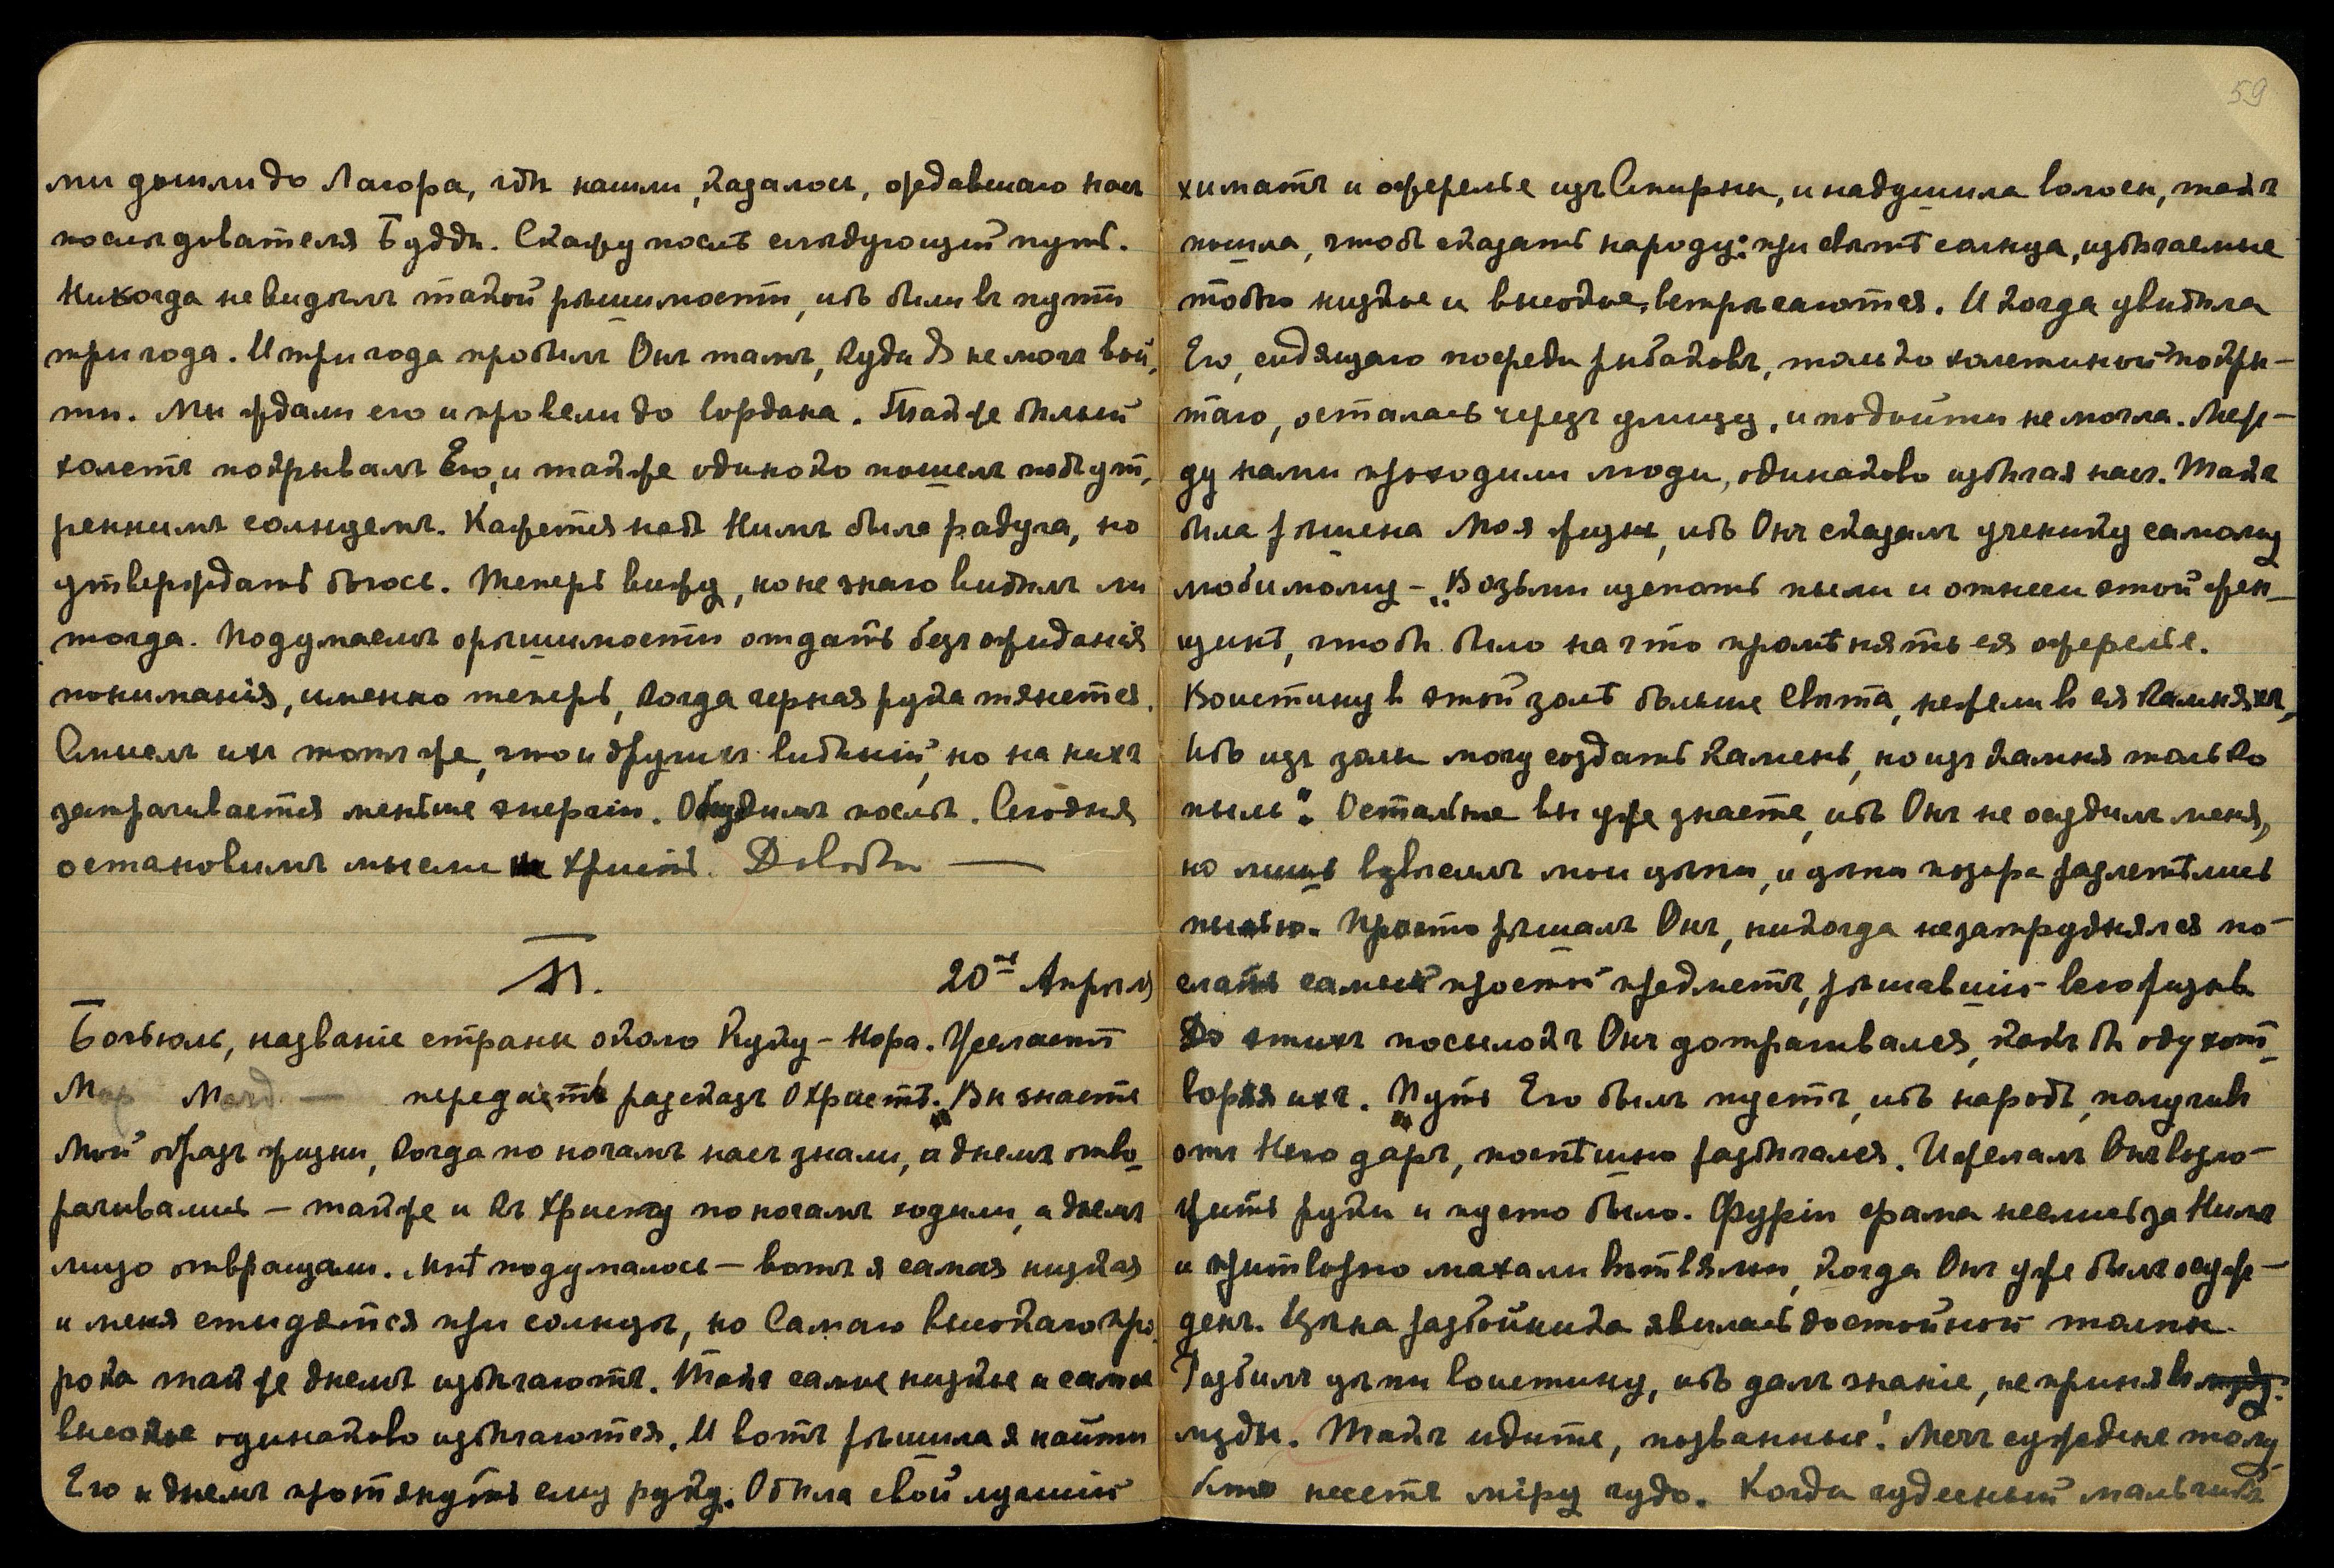 ми дошли до Лагора, гдѣ нашли, казалось, ождавшаго насъ
послѣдователя Будды. Скажу послѣ слѣдующій путь.
Никогда не видѣлъ такой рѣшимости, ибо были въ пути
три года. И три года пробылъ Онъ тамъ, куда Я не могъ вой,
ти. Мы ждали его и провели до Іордана. Также бѣлый
холстъ покрывалъ Его, и также одиноко пошелъ подъ ут,
реннимъ солнцемъ. Кажется надъ Нимъ была радуга, но
утверждать боюсь. Теперь вижу, но не знаю видѣлъ ли
тогда. Подумаемъ о рѣшимости отдать безъ ожиданія
пониманія, именно теперь, когда черная рука тянется.
Смыслъ ихъ тотъ же, что и другихъ видѣній, но на нихъ
затрачивается меньше энергіи. Обсудимъ послѣ. Сегодня
остановимъ мысли на Христѣ. Довольно —
П.
20ое Апрѣля
Богъюль, названіе страны около Куку-Нора. Желаетъ
передать разсказъ о Христѣ. „Вы знаете
Мой образъ жизни, когда по ночамъ насъ знали, а днемъ отво-
рачивались – также и къ Христу по ночамъ ходили, а днемъ
лицо отвращали. Мнѣ подумалось – вотъ я самая низкая
и меня стыдятся при солнцѣ, но Самаго высокаго про-
рока также днемъ избѣгаютъ. Такъ самые низкіе и самые
высокіе одинаково избѣгаются. И вотъ рѣшила я найти
Его и днемъ протянуть ему руку. Одѣла свой лучшій
59
химатъ и ожерелье изъ Смирны, и надушила волосы, такъ
пошла, чтобъ сказать народу: при свѣтѣ солнца, избѣгаемые
тобою низкіе и высокіе встрѣчаются. И когда увидѣла
Его, сидящаго посреди рыбаковъ, только холстиной покры-
таго, осталась черезъ улицу, и подойти не могла. Меж-
ду нами проходили люди, одинаково избѣгая насъ. Такъ
была рѣшена моя жизнь, ибо Онъ сказалъ ученику самому
любимому – „Возьми щепоть пыли и отнеси этой жен-
щинѣ, чтобы было на что промѣнять ея ожерелье.
Воистину въ этой золѣ больше свѣта, нежели въ ея камняхъ,
Ибо изъ золы могу создать камень, но изъ камня только
пыль“. Остальное вы уже знаете, ибо Онъ не осудилъ меня,
но лишь взвѣсилъ мои цѣпи, и цѣпи позора разлетѣлись
пылью. Просто рѣшалъ Онъ, никогда не затруднялся по-
слать самый простой предметъ, рѣшавшій всю жизнь.
До этихъ посылокъ Онъ дотрагивался, какъ бы одухот-
воряя ихъ. Путь Его былъ пустъ, ибо народъ, получивъ
отъ Него даръ, поспѣшно разбѣгался. И желалъ Онъ возло-
жить руки и пусто было. Фуріи срама неслись за Нимъ
и притворно махали вѣтвями, когда Онъ уже былъ осуж-
денъ. Цѣна разбойника явилась достойной толпы.
Разбилъ цѣпи воистину, ибо далъ знаніе, не принявъ
мзды. Такъ идите, позванные! Мечъ сужденъ тому
кто несетъ міру чудо. Когда чудесный мальчикъ